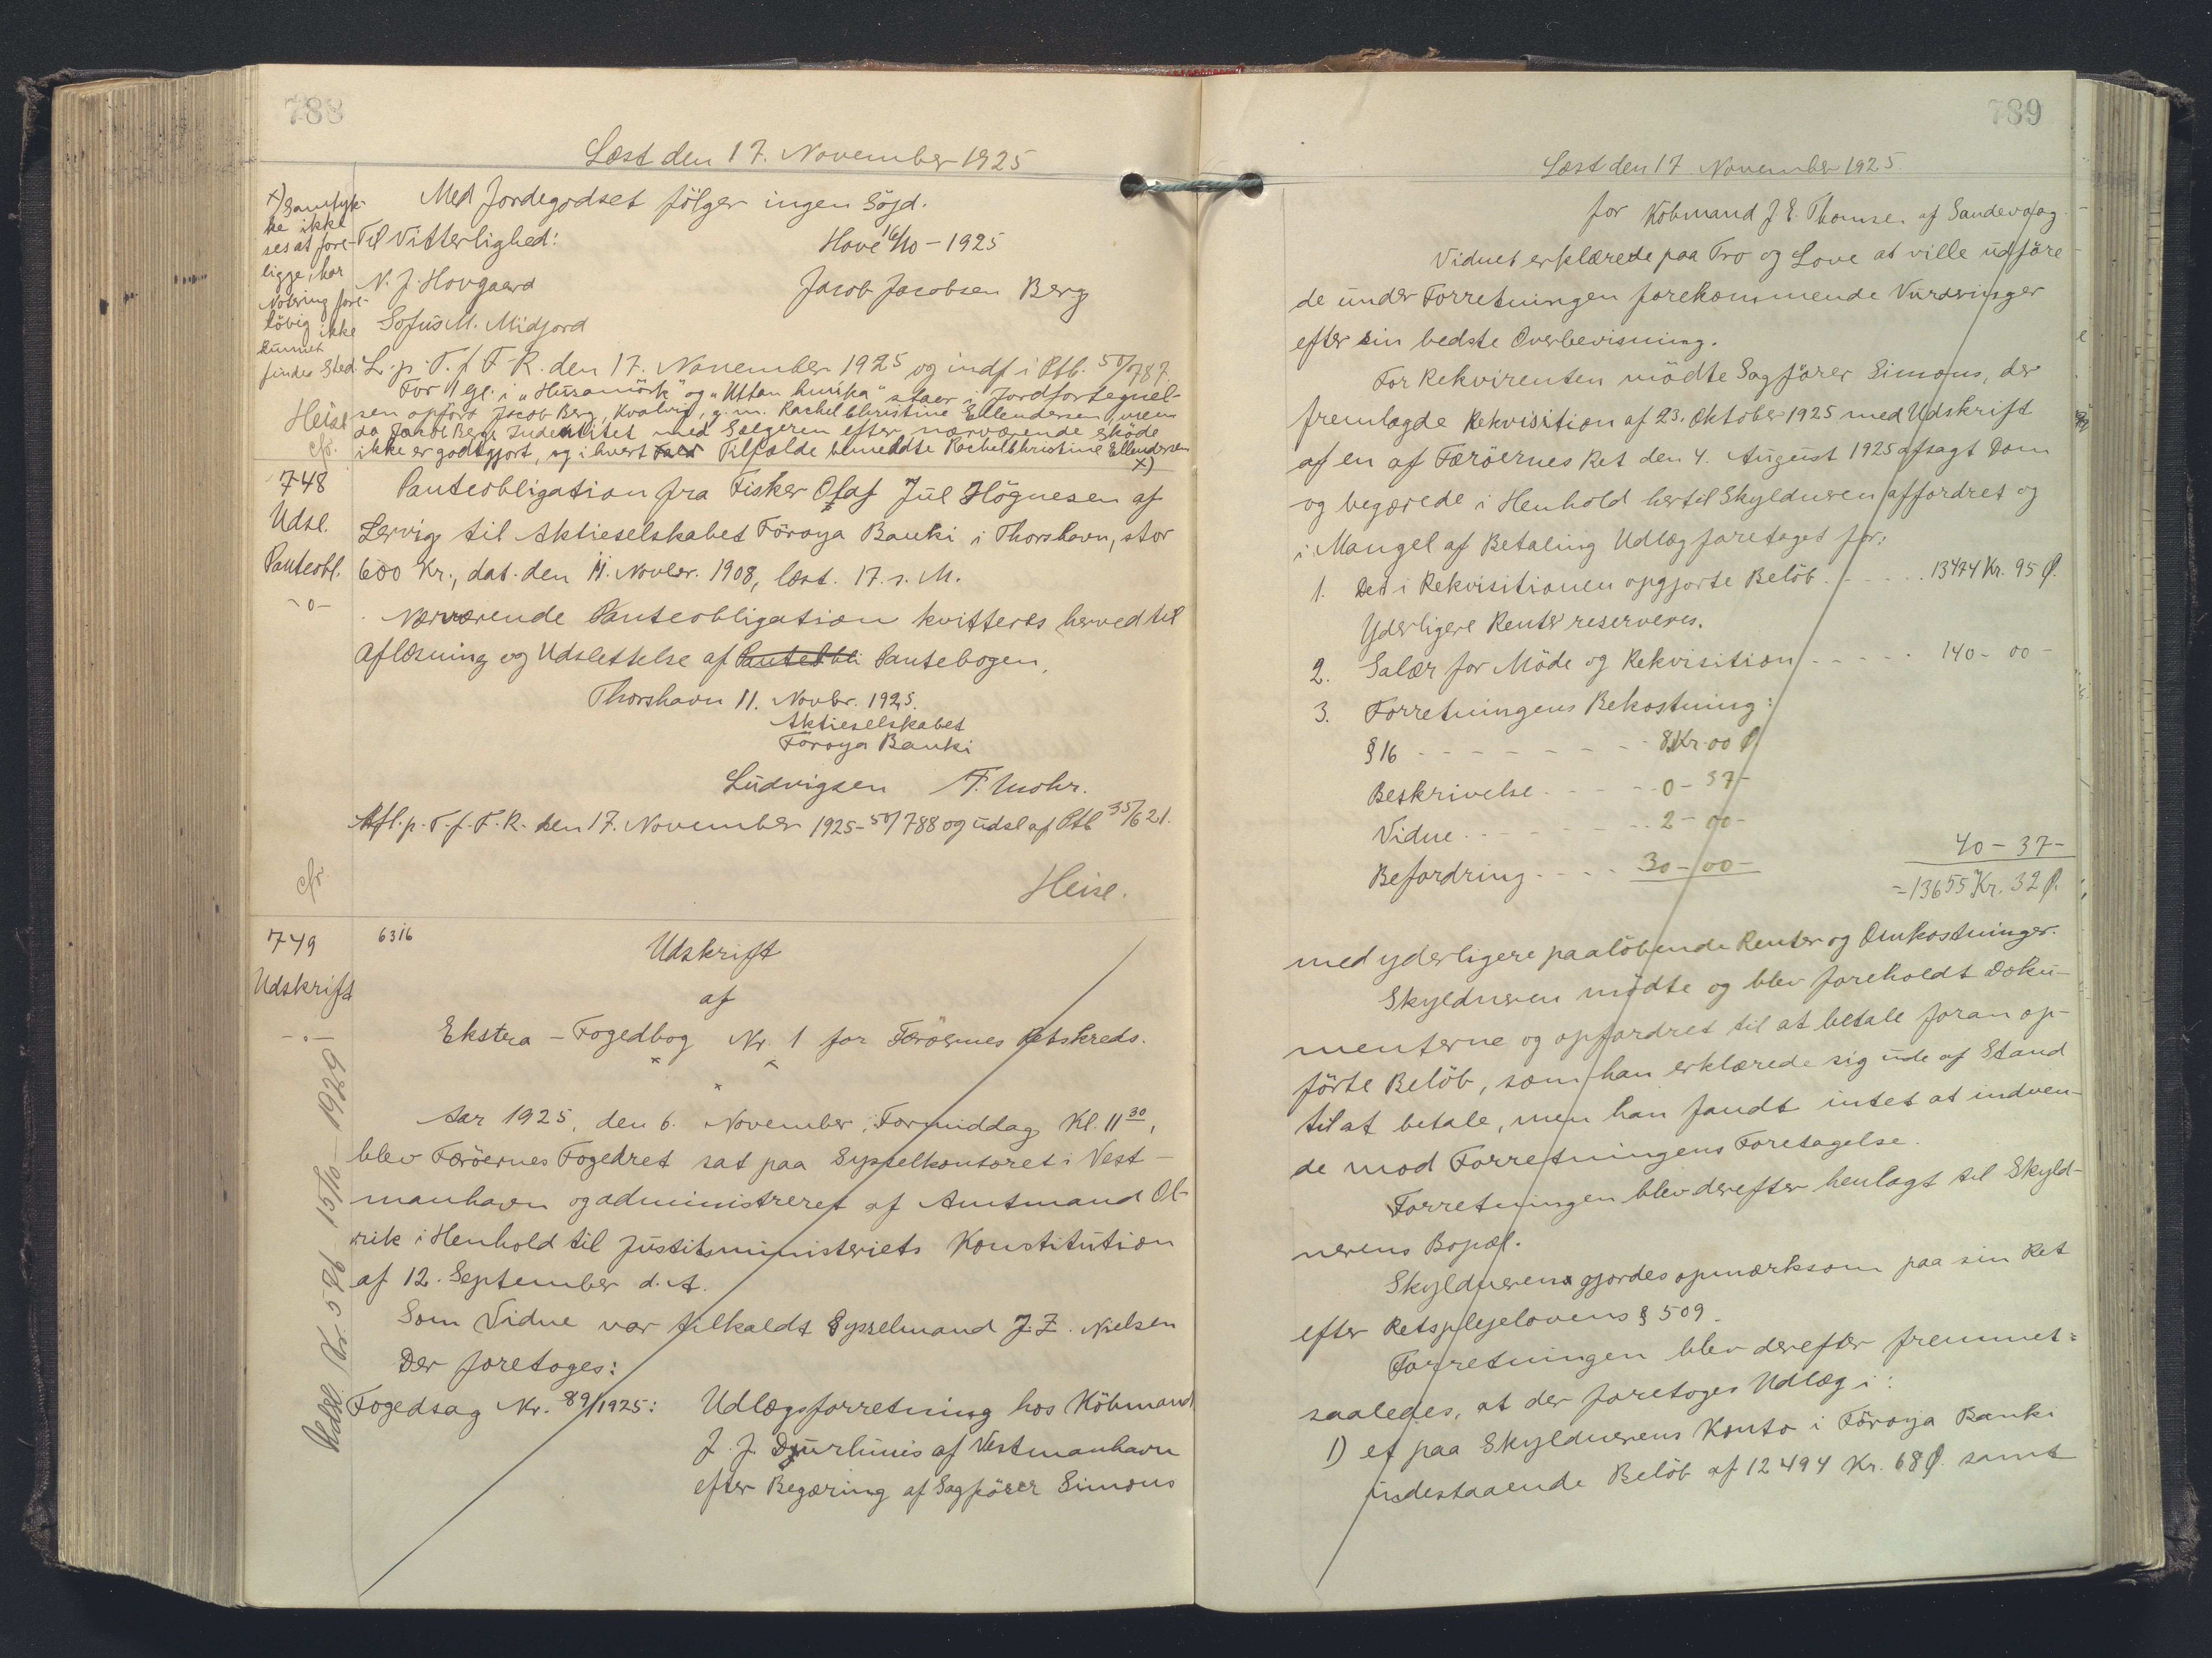 788
Læst den 17. November 1925
Med Jordegodset fölger ingen Söjd.
Til Vitterlighed: Hove 16/10 - 1925
N. J. Hovgaard Jacob Jacobsen Berg
Sofus M. Midjord
L. p. T. f. F. R. den 17. November 1925 og indf. i Ptb. 50/787.
For 1 gl. i "Husamörk" og "Uttan hunska" staar i Jordfortegnel-
sen opfört Jacob Berg, Kvalvig, g. m. Rachel Christine Ellendersen, men
da Jacob Bergs Indentitet med Sælgeren efter nærværende Sköde
ikke er godtgjort, og i hvert Fald Tilfælde bemeldte Rachel Christine Ellendersen
x)
x) Samtyk-
ke ikke
ses at fore-
ligge, har
Notering fore-
löbig ikke
kunnet
finde Sted.
Heise
cfr.
748
Udsl.
Panteobl.
-o-
Panteobligation fra Fisker Olaf Jul Högnesen af
Lervig til Aktieselskabet Föroya Banki i Thorshavn, stor
600 Kr., dat. den 11. Novbr. 1908, læst. 17. s. M.
Nærværende Panteobligation kvitteres herved til
Aflæsning og Udslettelse af Panteobli Pantebogen.
Thorshavn 11. Novbr. 1925.
Aktieselskabet
Föroya Banki
Ludvigsen F. Mohr.
Afl. p. T. f. F. R. den 17. November 1925 - 50/788 og udsl af Ptb 35/621.
cfr.
Heise.
749 6316
Udskrift
-o-
Udsl. Kr. 586 15/10 - 1929
Udskrift
af
Ekstra - Fogedbog Nr. 1 for Færöernes Retskreds.
Aar 1925, den 6. November, Formiddag Kl. 11 30,
blev Færöernes Fogedret sat paa Sysselkontoret i Vest-
manhavn og administreret af Amtmand Ol-
rik i Henhold til Justitsministeriets Konstitution
af 12. September d. A.
Som Vidne var tilkaldt Sysselmand J. Z. Nielsen
Der foretoges:
Fogedsag Nr. 89/1925: Udlægsforretning hos Köbmand
J. J. Djurhuus af Vestmanhavn
efter Begæring af Sagförer Simons
789
Læst den 17 November 1925.
for Köbmand J. E. Thomsen af Sandevaag.
Vidnet erklærede paa Tro og Love at ville udföre
de under Forretningen forekommende Vurderinger
efter sin bedste Overbevisning.
For Rekvirenten mödte Sagförer Simons, der
fremlagde Rekvisition af 23. Oktober 1925 med Udskrift
af en af Færöernes Ret den 4. August 1925 afsagt Dom
og begærede i Henhold hertil Skyldneren affordret og
i Mangel af Betaling Udlæg foretaget for:
1. Det i Rekvisitionen opgjorte Belöb . - - - . 13474 Kr. 95 Ø.
Yderligere Renter reserveres.
2. Salær for Möde og Rekvisition - - - - - 140 - 00 -
3. Forretningens Bekostning:
§ 16 - - - - - - - - 8 Kr. 00 Ø
Beskrivelse . - - - - 0 - 37 -
Vidne . - - - - - - - . 2 - 00 -
Befordring . - - - . 30 - 00 - 40 - 37 -
= 13655 Kr. 32 Ø.
med yderligere paalöbende Renter og Omkostninger.
Skyldneren mödte og blev foreholdt Doku-
menterne og opfordret til at betale foran op-
förte Belöb, som han erklærede sig ude af Stand
til at betale, men han fandt intet at indven-
de mod Forretningens Foretagelse.
Forretningen blev derefter henlagt til Skyld-
nerens Bopæl.
Skyldneren gjordes opmærksom paa sin Ret
efter Retsplejelovens § 509.
Forretningen blev derefter fremmet
saaledes, at der foretoges Udlæg i:
1) et paa Skyldnerens Konto i Föroya Banki
indestaaende Belöb af 12494 Kr. 68 Ø. samt